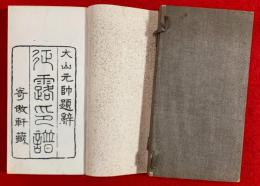 大山元帥題辭
征露印譜
寄傲軒藏